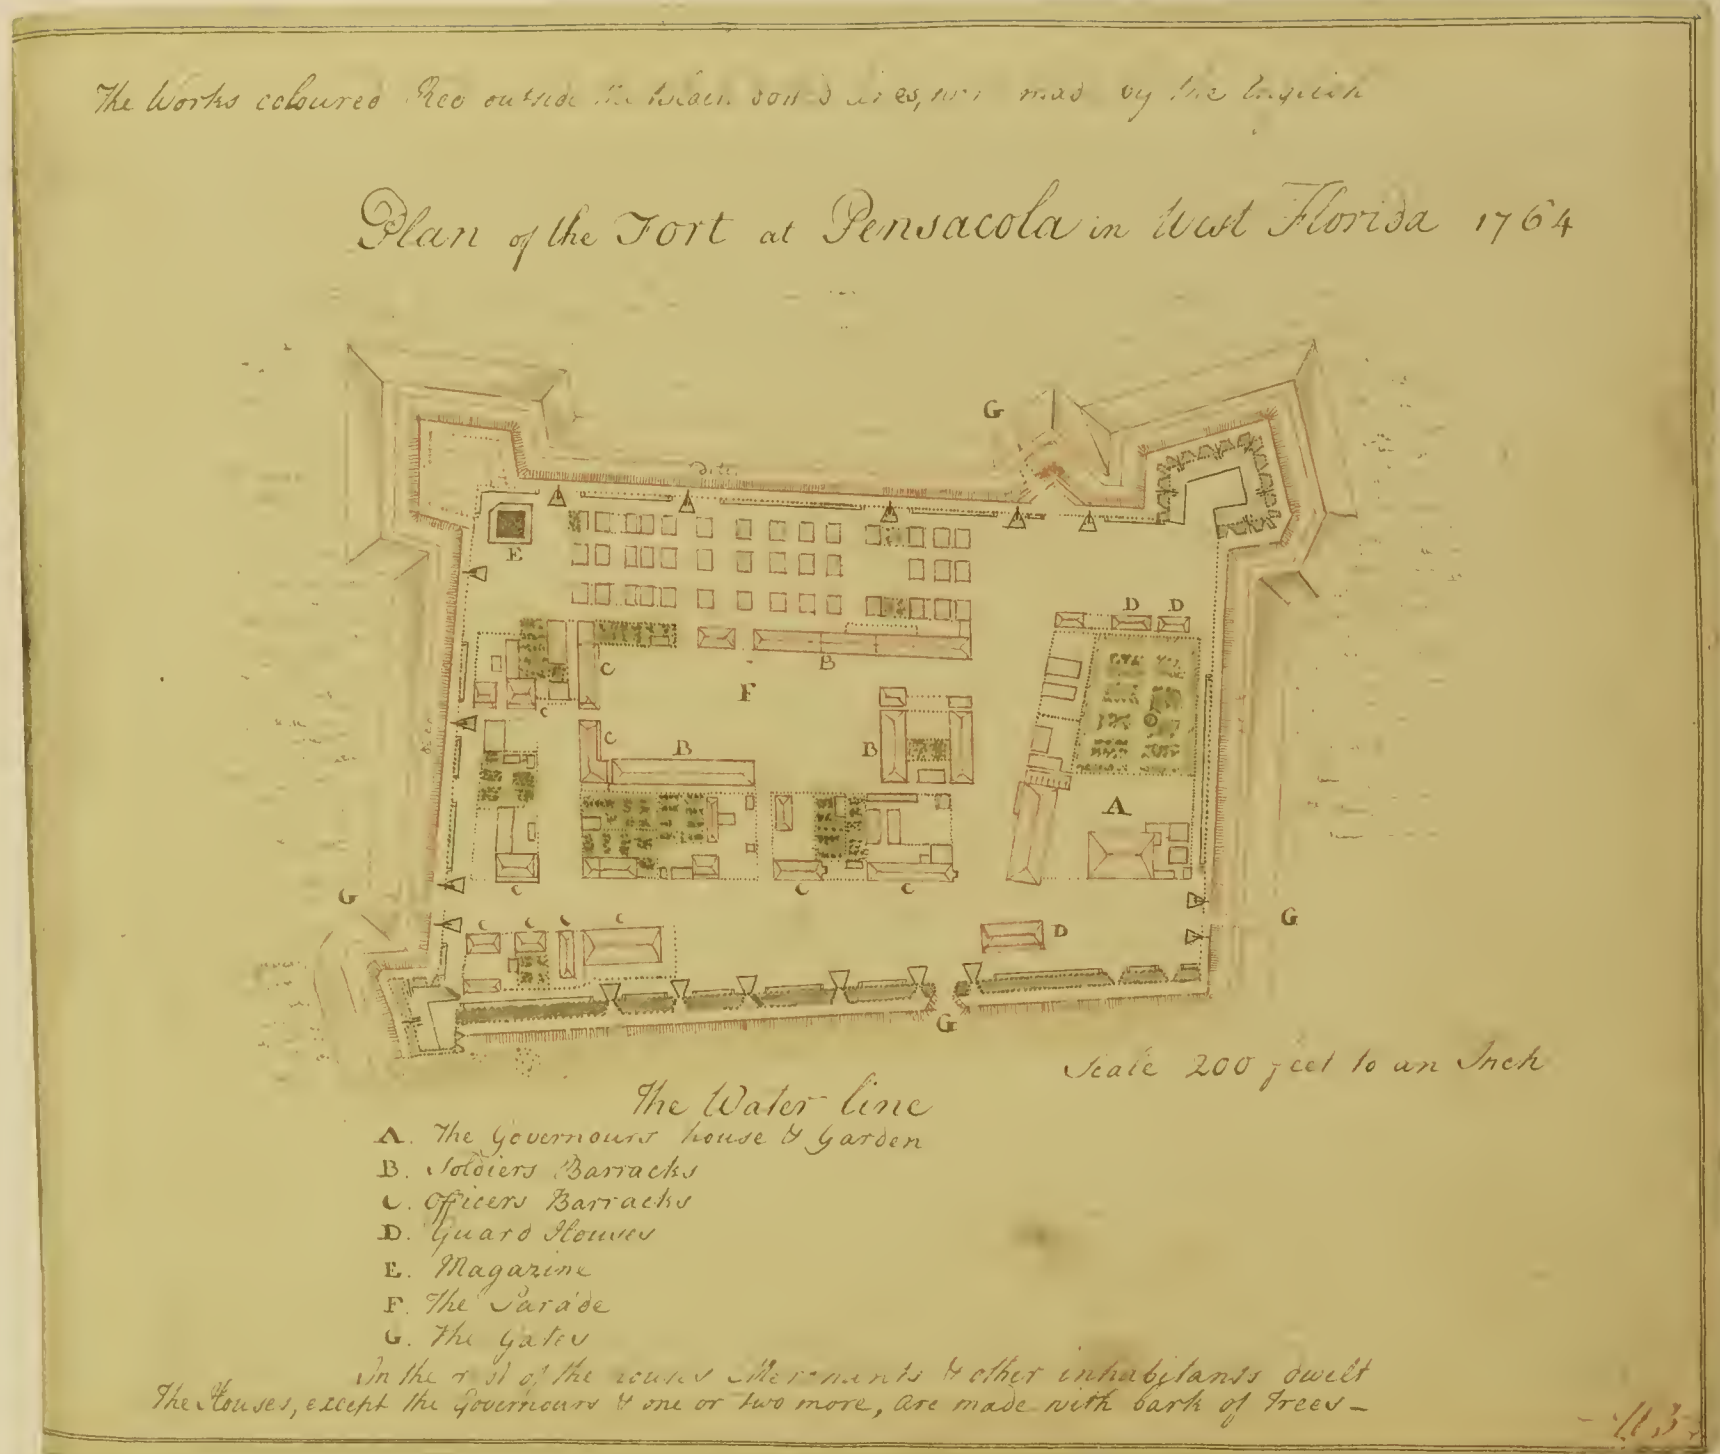 The Works coloured Red outside the made by the
Plan of the Fort at Pensacola in West Florida 1764
G
ditch
E
D D
C
B
F
C
C
B
B
A
C
C
C
G
G
C C C C
D
G
Scale 200 feet to an Inch
The Water line
A. The Governours house & Garden
B. Soldiers Barracks
C. Officers Barracks
D. Guard Houses
E. Magazine
F. The Parade
G. The Gates
In the rest of the houses Merchants & other inhabitants dwelt
The Houses, except the Governours & one or two more, are made with bark of Trees –